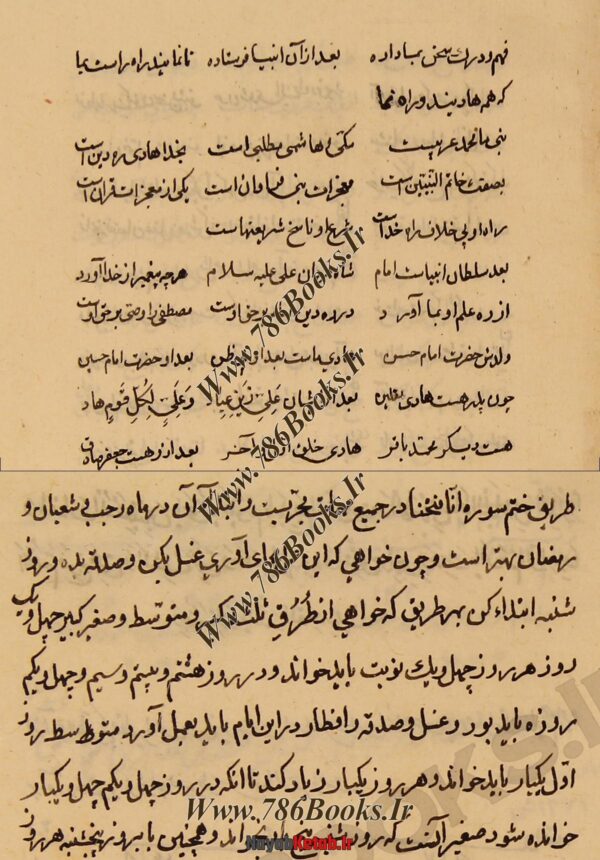 فهم و درك سخن بما داده بعد از آن انبیا فرستاده تا نمایند راه راست بما
که همه هادیند و راه نما
نبی ما محمد عربیست مکی و هاشمی مطلبی است بخدا هادی ره دین است
بصفت خاتم النبیین است معجزات نبی فراوان است یکی از معجزات قرآن است
راه او پی خلاف راه خداست شرع او ناسخ شریعتهاست
بعد سلطان انبیاست امام شاه علی علیه سلام هرچه پیغمبر از خدا آورد
از ره علم او بما آورد در ره دین بر حق اوست مصطفی را وصی بر حق اوست
ولدش حضرت امام حسن هادی ماست بعد او بعد او حضرت امام حسین
چون پدر هست هادی ثقلین بعد علی زین عباد و علی لکل قوم هاد
هست دیگر محمد باقر هادی خلق اول و آخر بعد از او هست جعفر صادق
طریق ختم سوره انا فتحنا در جمیع مجربست و ابتداء آن در ماه رجب و شعبان و
رمضان بهتر است و چون خواهی که این بجای آوری غسل بکن و صدقه بده و روز
شنبه ابتداء کن بهر طریق که خواهی از طرق ثلث کبیر و متوسط و صغیر کبیر چهل و یک
روز هر روز چهل و یك نوبت باید خواند و در روز هشتم و بیستم و سیم و چهل و یکم
روزه باید بود و غسل و صدقه و افطار در این ایام باید بعمل آورد متوسط روز
اول یکبار باید خواند و هر روز یکبار زیاد کند تا آنکه در روز چهل و یکم چهل و یکبار
خوانده شود صغیر آنست که روز شنبه پنج بار خواند و همچنین تا بروز پنجشنبه هر روز
www.786Books.Ir
www.786Books.Ir
www.786Books.Ir
www.786Books.Ir
NayabKetab.Ir